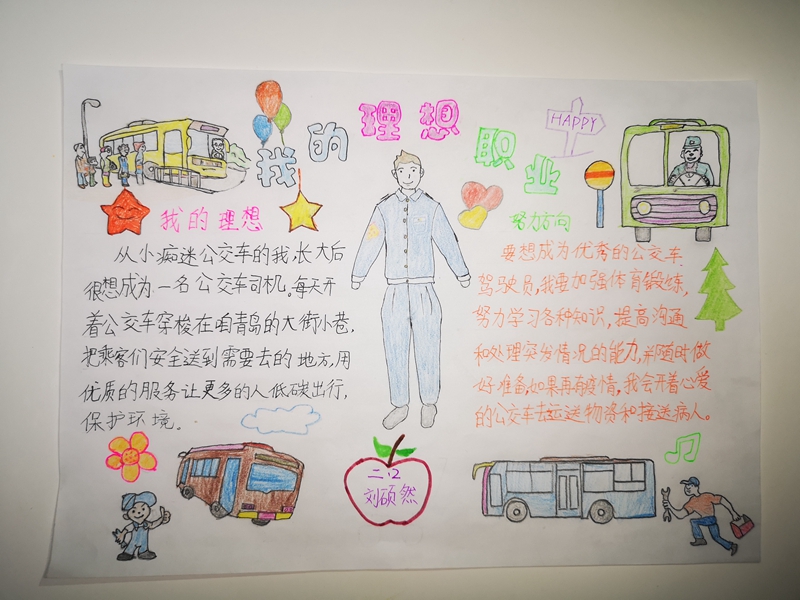 我的理想职业
HAPPY
我的理想
从小痴迷公交车的我,长大后
很想成为一名公交车司机。每天开
着公交车穿梭在咱青岛的大街小巷,
把乘客们安全送到需要去的地方,用
优质的服务让更多的人低碳出行,
保护环境。
努力方向
要想成为优秀的公交车
驾驶员,我要加强体育锻炼,
努力学习各种知识,提高沟通
和处理突发情况的能力,并随时做
好准备,如果再有疫情,我会开着心爱
的公交车去运送物资和接送病人。
二.12
刘硕然